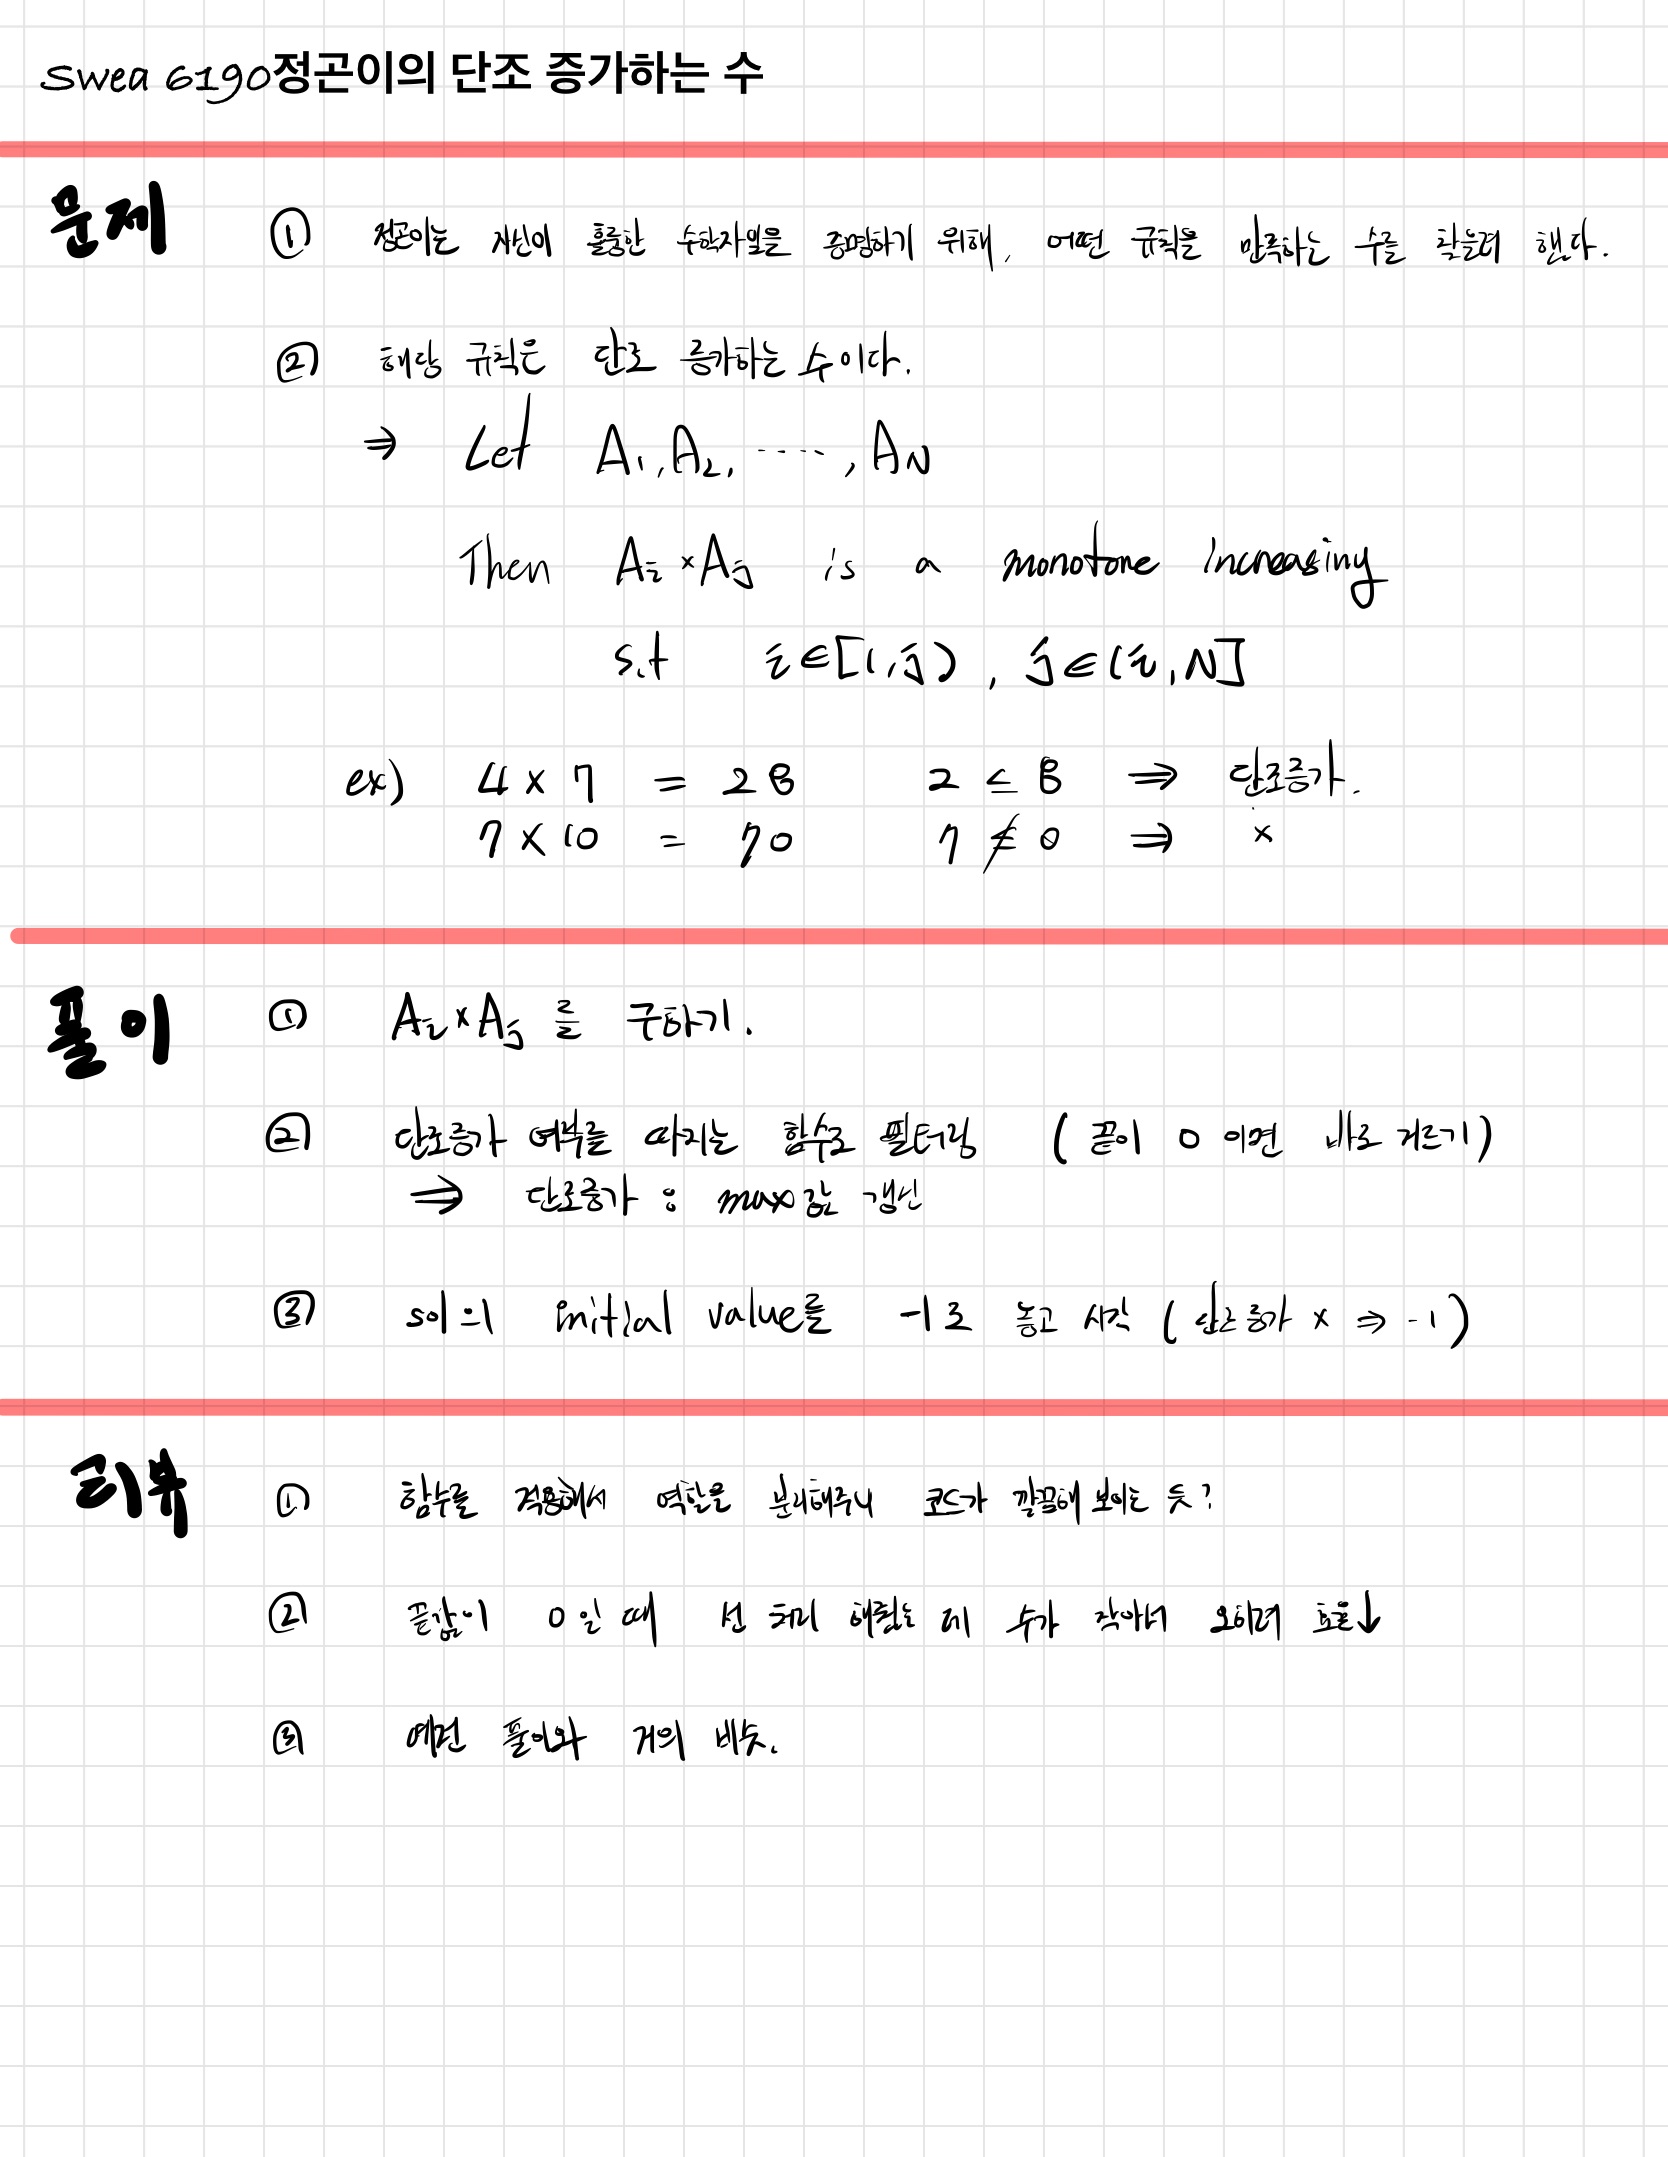 Swea 6190정곤이의 단조 증가하는 수
문제 ① 정곤이는 자신이 훌륭한 수학자임을 증명하기 위해, 어떤 규칙을 만족하는 수를 찾을려 했다.
② 해당 규칙은 단조 증가하는 수이다.
⇒ Let A₁, A₂, ‥‥, A_N
Then Aᵢ × Aⱼ is a monotone increasing
s.t i ∈ [1, j), j ∈ (i, N]
ex) 4 × 7 = 28 2 ≤ 8 ⇒ 단조증가.
7 × 10 = 70 7 ≰ 0 ⇒ ×
풀이 ① Aᵢ × Aⱼ 를 구하기.
② 단조증가 여부를 따지는 함수로 필터링 (끝이 0 이면 바로 거르기)
⇒ 단조증가 : max값 갱신
③ sol의 initial value를 -1로 놓고 시작 (단조증가 × ⇒ -1)
리뷰 ① 함수를 적용해서 역할을 분리해주니 코드가 깔끔해 보이는 듯?
② 끝값이 0일 때 선 처리 해줬는데 수가 작아서 오히려 효율↓
③ 예전 풀이와 거의 비슷.